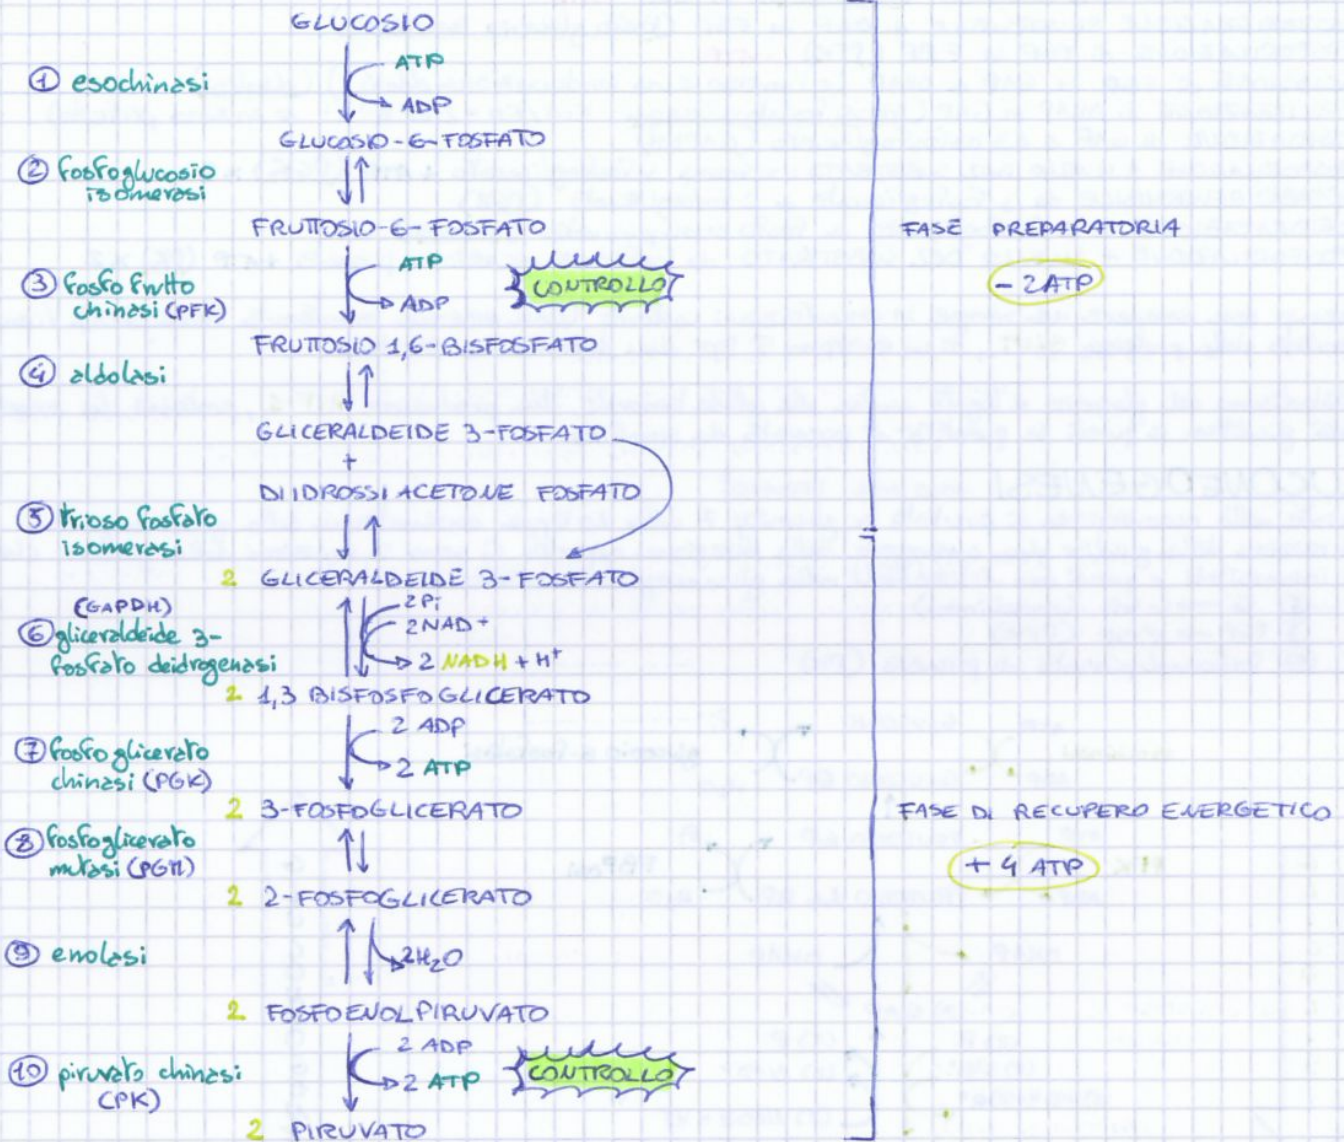 GLUCOSIO
① esochinasi
ATP
ADP
GLUCOSIO-6-FOSFATO
② fosfoglucosio
isomerasi
FRUTTOSIO-6-FOSFATO
③ fosfo frutto
chinasi (PFK)
ATP
ADP
CONTROLLO
FRUTTOSIO 1,6-BISFOSFATO
④ aldolasi
GLICERALDEIDE 3-FOSFATO
+
DIIDROSSIACETONE FOSFATO
⑤ trioso fosfato
isomerasi
2 GLICERALDEIDE 3-FOSFATO
(GAPDH)
⑥ gliceraldeide 3-
fosfato deidrogenasi
2Pi
2NAD+
2 NADH + H+
2 1,3 BISFOSFOGLICERATO
⑦ fosfoglicerato
chinasi (PGK)
2 ADP
2 ATP
2 3-FOSFOGLICERATO
⑧ fosfoglicerato
mutasi (PGM)
2 2-FOSFOGLICERATO
⑨ enolasi
2H₂O
2 FOSFOENOLPIRUVATO
⑩ piruvato chinasi
(PK)
2 ADP
2 ATP
CONTROLLO
2 PIRUVATO
FASE PREPARATORIA
- 2ATP
FASE DI RECUPERO ENERGETICO
+ 4 ATP